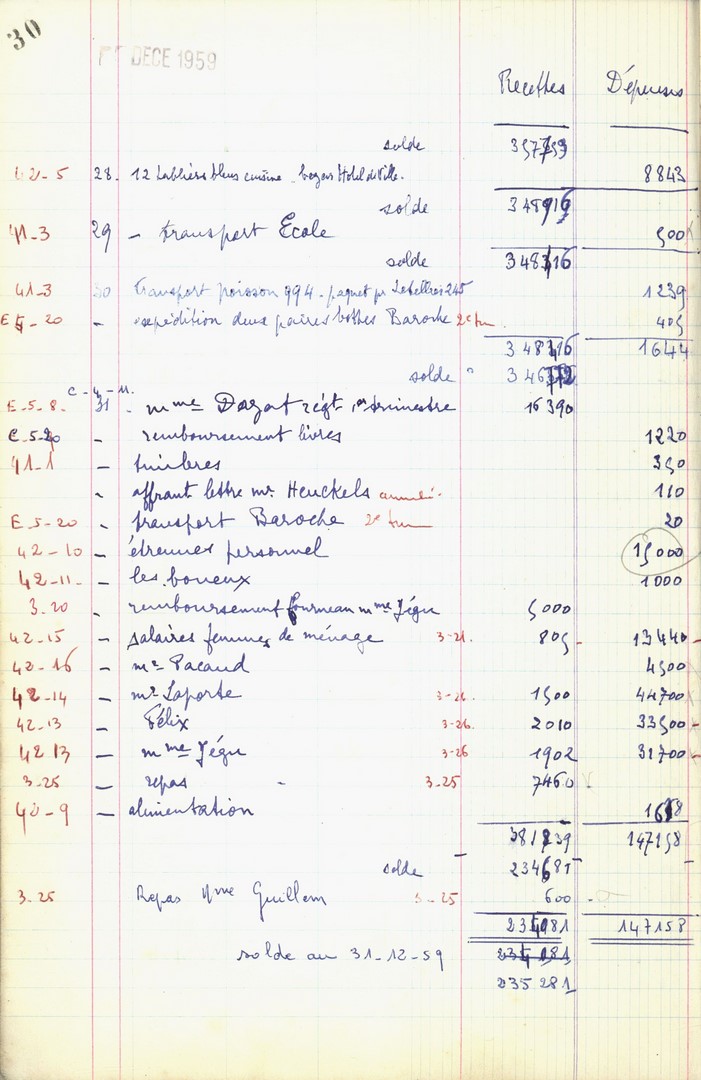 30
DECE 1959
Recettes Dépenses
solde 357759
42-5 28. 12 tabliers bleus cuisine bazar Hotel de Ville. 8843
solde 348916
41-3 29 - transport École 500
solde 348416
41-3 30 Transport poisson 994 - paquet pr Letellier 245 1239
E 5-20 - expédition deux paires bottes Baroche 2e tri 405
348416 1644
solde 346772
C-4-11.
E-5-8. 31 - mme règt 1er trimestre 16390
C.5-20 - remboursement livres 1220
41-1 - timbres 350
- lettre mr. Heuckels 110
E.5-20 - transport Baroche 2e tri 20
42-10 - étrennes personnel 15000
42-11 - les boueux 1000
3.20 - remboursement fourneau mme Jégu 5000
42-15 - salaires femmes de ménage 3-21. 805 13440
42-16 - mr Pacaud 4500
42-14 - mr Laporte 3-26 1500 44700
42-13 - Félix 3-26. 2010 33500
42 13 - mme Jégu 3-26 1902 31700
3-25 - repas 3-25 7460
42-9 - alimentation 1618
381839 147158
solde 234681
3-25 Repas Mme Guillem 3-25 600
147158
solde au 31-12-59
235 281